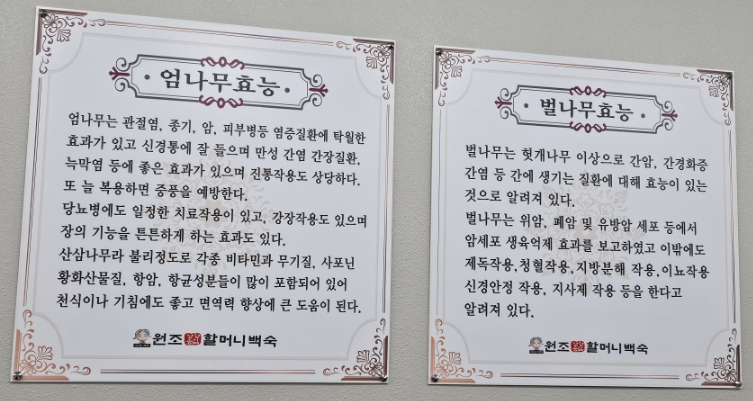 엄나무효능
엄나무는 관절염, 종기, 암, 피부병등 염증질환에 탁월한
효과가 있고 신경통에 잘 들으며 만성 간염 간장질환,
늑막염 등에 좋은 효과가 있으며 진통작용도 상당하다.
또 늘 복용하면 중풍을 예방한다.
당뇨병에도 일정한 치료작용이 있고, 강장작용도 있으며
장의 기능을 튼튼하게 하는 효과도 있다.
산삼나무라 불리정도로 각종 비타민과 무기질, 사포닌
황화산물질, 항암, 항균성분들이 많이 포함되어 있어
천식이나 기침에도 좋고 면역력 향상에 큰 도움이 된다.
원조 할머니백숙
벌나무효능
벌나무는 헛개나무 이상으로 간암, 간경화증
간염 등 간에 생기는 질환에 대해 효능이 있는
것으로 알려져 있다.
벌나무는 위암, 폐암 및 유방암 세포 등에서
암세포 생육억제 효과를 보고하였고 이밖에도
제독작용,청혈작용,지방분해 작용,이뇨작용
신경안정 작용, 지사제 작용 등을 한다고
알려져 있다.
원조 할머니백숙